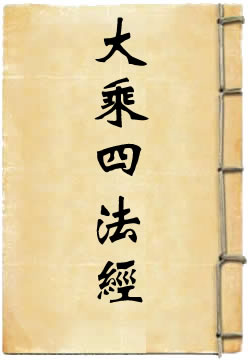 大乘四法經